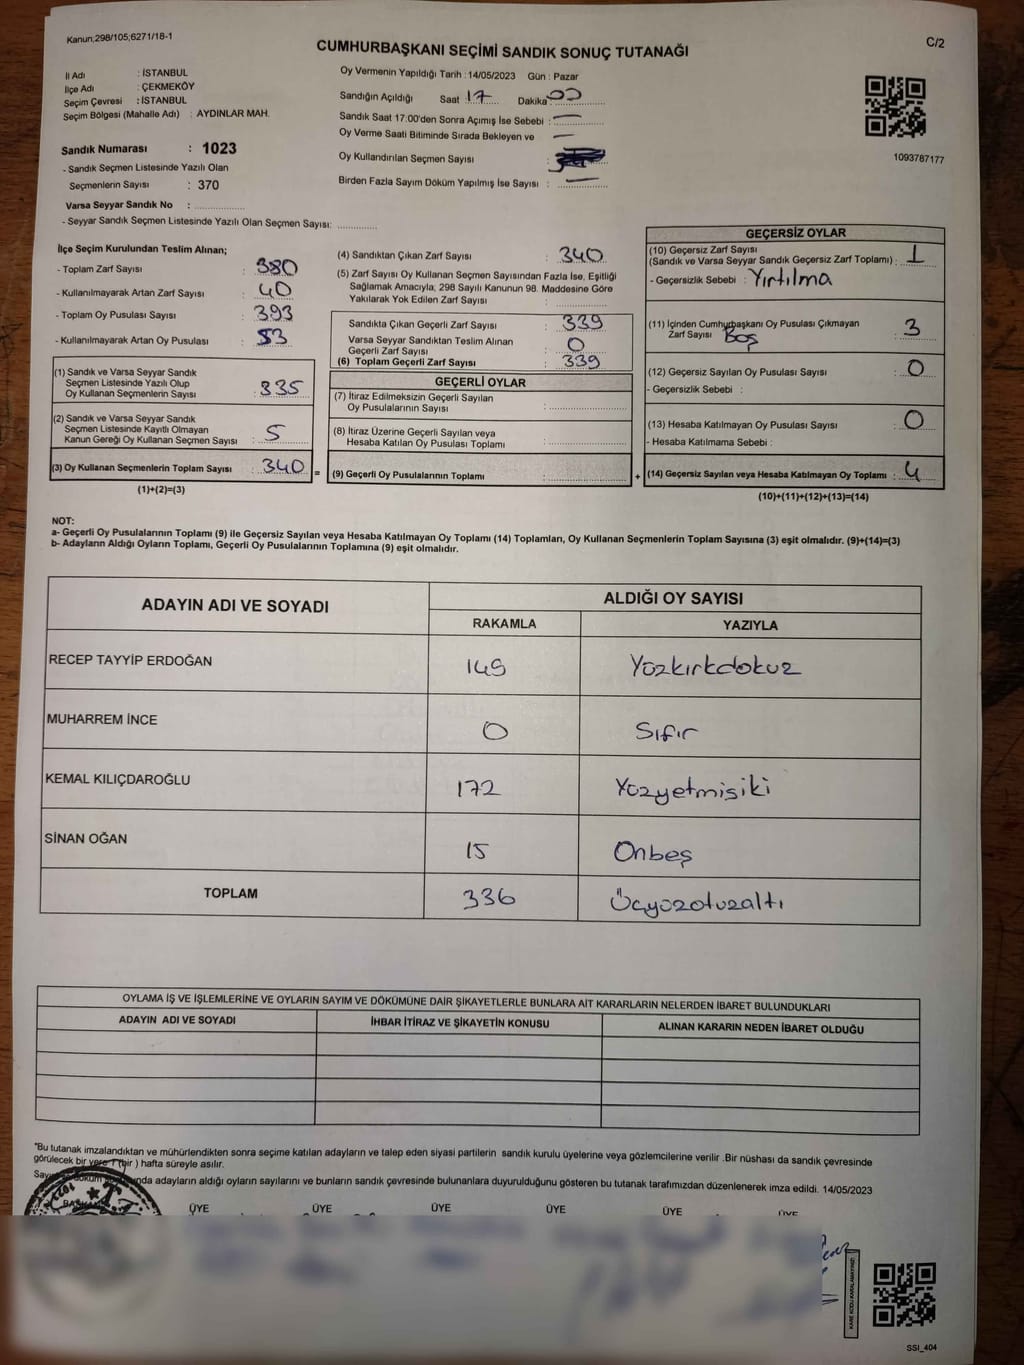 Kanun,298/105;6271/18-1
C/2
CUMHURBAŞKANI SEÇİMİ SANDIK SONUÇ TUTANAĞI
İl Adı : İSTANBUL
İlçe Adı : ÇEKMEKÖY
Seçim Çevresi : İSTANBUL
Seçim Bölgesi (Mahalle Adı) : AYDINLAR MAH.
Sandık Numarası : 1023
- Sandık Seçmen Listesinde Yazılı Olan
Seçmenlerin Sayısı : 370
Varsa Seyyar Sandık No :
- Seyyar Sandık Seçmen Listesinde Yazılı Olan Seçmen Sayısı:
Oy Vermenin Yapıldığı Tarih : 14/05/2023 Gün : Pazar
Sandığın Açıldığı Saat 17 Dakika 00
Sandık Saat 17:00'den Sonra Açımış İse Sebebi : —
Oy Verme Saati Bitiminde Sırada Bekleyen ve —
Oy Kullandırılan Seçmen Sayısı :
Birden Fazla Sayım Döküm Yapılmış İse Sayısı : —
1093787177
İlçe Seçim Kurulundan Teslim Alınan;
- Toplam Zarf Sayısı : 380
- Kullanılmayarak Artan Zarf Sayısı : 40
- Toplam Oy Pusulası Sayısı : 393
- Kullanılmayarak Artan Oy Pusulası : 53
(1) Sandık ve Varsa Seyyar Sandık
Seçmen Listesinde Yazılı Olup
Oy Kullanan Seçmenlerin Sayısı : 335
(2) Sandık ve Varsa Seyyar Sandık
Seçmen Listesinde Kayıtlı Olmayan
Kanun Gereği Oy Kullanan Seçmen Sayısı : 5
(3) Oy Kullanan Seçmenlerin Toplam Sayısı : 340 =
(1)+(2)=(3)
(4) Sandıktan Çıkan Zarf Sayısı : 340
(5) Zarf Sayısı Oy Kullanan Seçmen Sayısından Fazla İse, Eşitliği
Sağlamak Amacıyla; 298 Sayılı Kanunun 98. Maddesine Göre
Yakılarak Yok Edilen Zarf Sayısı :
Sandıkta Çıkan Geçerli Zarf Sayısı : 339
Varsa Seyyar Sandıktan Teslim Alınan
Geçerli Zarf Sayısı : 0
(6) Toplam Geçerli Zarf Sayısı : 339
GEÇERLİ OYLAR
(7) İtiraz Edilmeksizin Geçerli Sayılan
Oy Pusulalarının Sayısı :
(8) İtiraz Üzerine Geçerli Sayılan veya
Hesaba Katılan Oy Pusulası Toplamı :
(9) Geçerli Oy Pusulalarının Toplamı : +
GEÇERSİZ OYLAR
(10) Geçersiz Zarf Sayısı
(Sandık ve Varsa Seyyar Sandık Geçersiz Zarf Toplamı) : 1
- Geçersizlik Sebebi : Yırtılma
(11) İçinden Cumhurbaşkanı Oy Pusulası Çıkmayan
Zarf Sayısı Boş : 3
(12) Geçersiz Sayılan Oy Pusulası Sayısı : 0
- Geçersizlik Sebebi :
(13) Hesaba Katılmayan Oy Pusulası Sayısı : 0
- Hesaba Katılmama Sebebi :
(14) Geçersiz Sayılan veya Hesaba Katılmayan Oy Toplamı : 4
(10)+(11)+(12)+(13)=(14)
NOT:
a- Geçerli Oy Pusulalarının Toplamı (9) ile Geçersiz Sayılan veya Hesaba Katılmayan Oy Toplamı (14) Toplamları, Oy Kullanan Seçmenlerin Toplam Sayısına (3) eşit olmalıdır. (9)+(14)=(3)
b- Adayların Aldığı Oyların Toplamı, Geçerli Oy Pusulalarının Toplamına (9) eşit olmalıdır.
ADAYIN ADI VE SOYADI ALDIĞI OY SAYISI
RAKAMLA YAZIYLA
RECEP TAYYİP ERDOĞAN 149 Yüzkırkdokuz
MUHARREM İNCE 0 Sıfır
KEMAL KILIÇDAROĞLU 172 Yüzyetmişiki
SİNAN OĞAN 15 Onbeş
TOPLAM 336 Üçyüzotuzaltı
OYLAMA İŞ VE İŞLEMLERİNE VE OYLARIN SAYIM VE DÖKÜMÜNE DAİR ŞİKAYETLERLE BUNLARA AİT KARARLARIN NELERDEN İBARET BULUNDUKLARI
ADAYIN ADI VE SOYADI İHBAR İTİRAZ VE ŞİKAYETİN KONUSU ALINAN KARARIN NEDEN İBARET OLDUĞU
*Bu tutanak imzalandıktan ve mühürlendikten sonra seçime katılan adayların ve talep eden siyasi partilerin sandık kurulu üyelerine veya gözlemcilerine verilir .Bir nüshası da sandık çevresinde
görülecek bir yere 1 (bir ) hafta süreyle asılır.
adayların aldığı oyların sayılarını ve bunların sandık çevresinde bulunanlara duyurulduğunu gösteren bu tutanak tarafımızdan düzenlenerek imza edildi. 14/05/2023
ÜYE ÜYE ÜYE ÜYE ÜYE ÜYE
KARE KODU KARALAMAYINIZ!
SSI_404